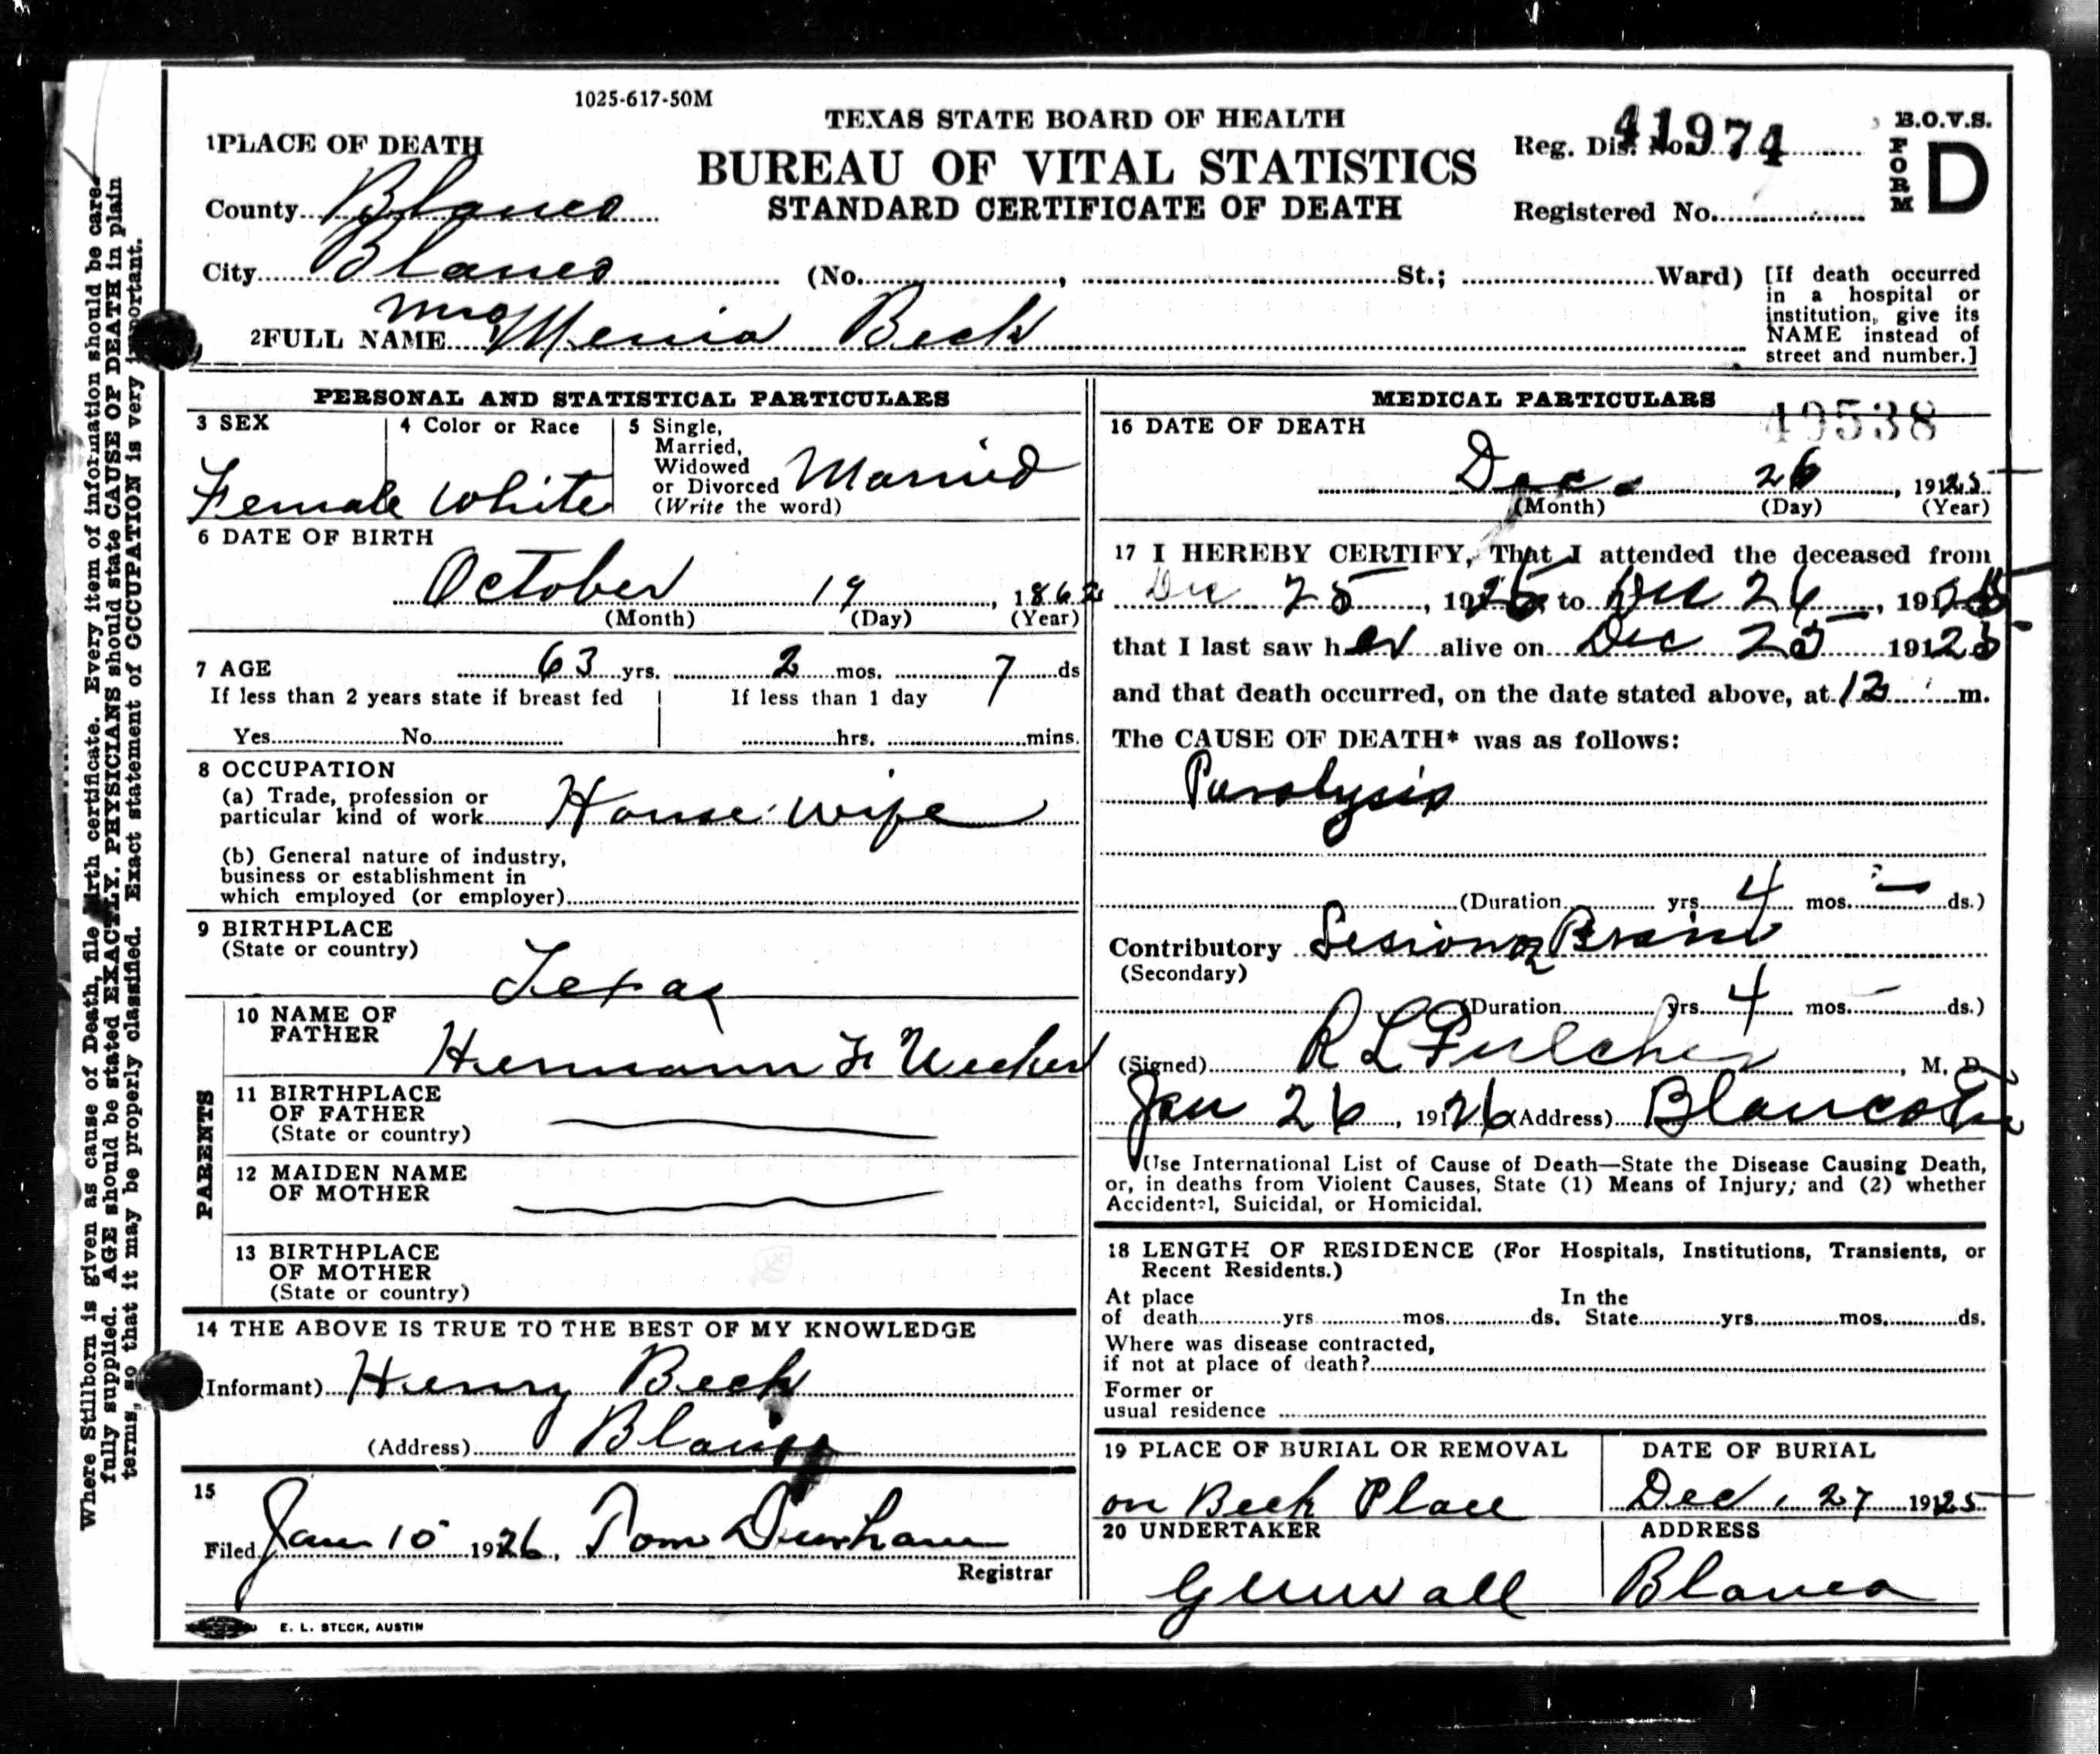 1025-617-50M
TEXAS STATE BOARD OF HEALTH
BUREAU OF VITAL STATISTICS
STANDARD CERTIFICATE OF DEATH
Reg. Dis. No. 41974
Registered No.
B.O.V.S.
FORM D
1 PLACE OF DEATH
County Blanco
City Blanco (No. , St.; Ward)
[If death occurred
in a hospital or
institution, give its
NAME instead of
street and number.]
2 FULL NAME Mrs Menia Beck
PERSONAL AND STATISTICAL PARTICULARS
3 SEX
Female
4 Color or Race
White
5 Single,
Married,
Widowed
or Divorced
(Write the word)
Married
6 DATE OF BIRTH
October 19, 1862
(Month) (Day) (Year)
7 AGE 63 yrs. 2 mos. 7 ds
If less than 2 years state if breast fed
Yes No
If less than 1 day
hrs. mins.
8 OCCUPATION
(a) Trade, profession or
particular kind of work House wife
(b) General nature of industry,
business or establishment in
which employed (or employer)
9 BIRTHPLACE
(State or country)
Texas
PARENTS
10 NAME OF
FATHER
Hermann
11 BIRTHPLACE
OF FATHER
(State or country)
12 MAIDEN NAME
OF MOTHER
13 BIRTHPLACE
OF MOTHER
(State or country)
14 THE ABOVE IS TRUE TO THE BEST OF MY KNOWLEDGE
(Informant) Henry Beck
(Address) Blanco
15
Filed Jan 10 1926, Tom Dunham
Registrar
E. L. STECK, AUSTIN
MEDICAL PARTICULARS
49538
16 DATE OF DEATH
Dec. 26, 1925
(Month) (Day) (Year)
17 I HEREBY CERTIFY, That I attended the deceased from
Dec 25, 1925 to Dec 26, 1925
that I last saw her alive on Dec 25 1925
and that death occurred, on the date stated above, at 12 m.
The CAUSE OF DEATH* was as follows:
Paralysis
(Duration yrs. 4 mos. — ds.)
Contributory Lesion of Brain
(Secondary)
(Duration yrs. 4 mos. — ds.)
(Signed) R L Fulcher, M. D.
Jan 26, 1926 (Address) Blanco Tex
*Use International List of Cause of Death—State the Disease Causing Death,
or, in deaths from Violent Causes, State (1) Means of Injury; and (2) whether
Accidental, Suicidal, or Homicidal.
18 LENGTH OF RESIDENCE (For Hospitals, Institutions, Transients, or
Recent Residents.)
At place
of death yrs mos. ds. In the
State yrs. mos. ds.
Where was disease contracted,
if not at place of death?
Former or
usual residence
19 PLACE OF BURIAL OR REMOVAL
on Beck Place
DATE OF BURIAL
Dec. 27 1925
20 UNDERTAKER
ADDRESS
Blanco
Where Stillborn is given as cause of Death, file Birth certificate. Every item of information should be care-
fully supplied. AGE should be stated EXACTLY. PHYSICIANS should state CAUSE OF DEATH in plain
terms, so that it may be properly classified. Exact statement of OCCUPATION is very important.